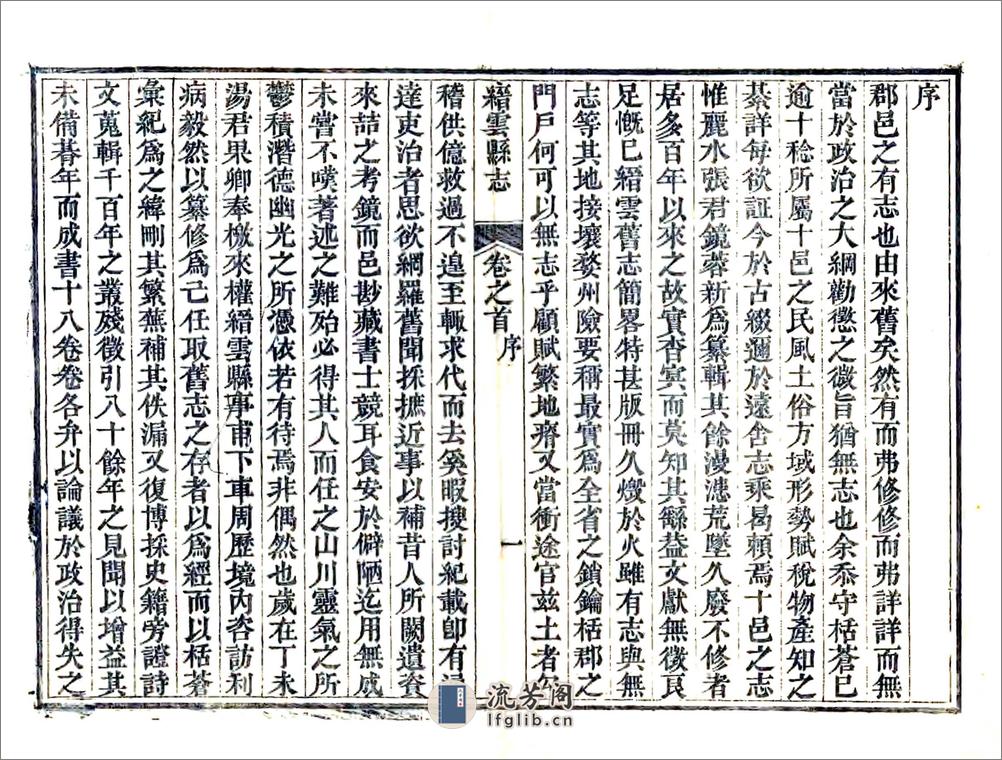 序
郡邑之有志也由來舊矣然有而弗修修而弗詳詳而無
當於政治之大綱勸懲之微旨猶無志也余忝守栝蒼已
逾十稔所屬十邑之民風土俗方域形勢賦稅物產知之
綦詳每欲証今於古綴邇於遠舍志乘曷賴焉十邑之志
惟麗水張君鏡蓉新爲纂輯其餘漫漶荒墜久廢不修者
居多百年以來之故實杳冥而莫知其繇葢文獻無徵良
足慨已縉雲舊志簡畧特甚版冊久燬於火雖有志與無
志等其地接壤婺州險要稱最實爲全省之鎖鑰栝郡之
門戶何可以無志乎顧賦繁地瘠又當衝途官兹土者
縉雲縣志
卷之首
序
一
稽供億救過不遑至輙求代而去奚暇搜討紀載卽有
達吏治者思欲網羅舊聞採摭近事以補昔人所闕遺資
來喆之考鏡而邑尠藏書士競耳食安於僻陋迄用無成
未嘗不嘆著述之難殆必得其人而任之山川靈氣之所
鬱積潛德幽光之所憑依若有待焉非偶然也歲在丁未
湯君果卿奉檄來權縉雲縣事甫下車周歷境內咨訪利
病毅然以纂修爲己任取舊志之存者以爲經而以栝蒼
彙紀爲之緯刪其繁蕪補其佚漏又復博採史籍旁證詩
文蒐輯千百年之叢殘徵引八十餘年之見聞以增益其
未備朞年而成書十八卷卷各弁以論議於政治得失之
流芳阁
lfglib.cn